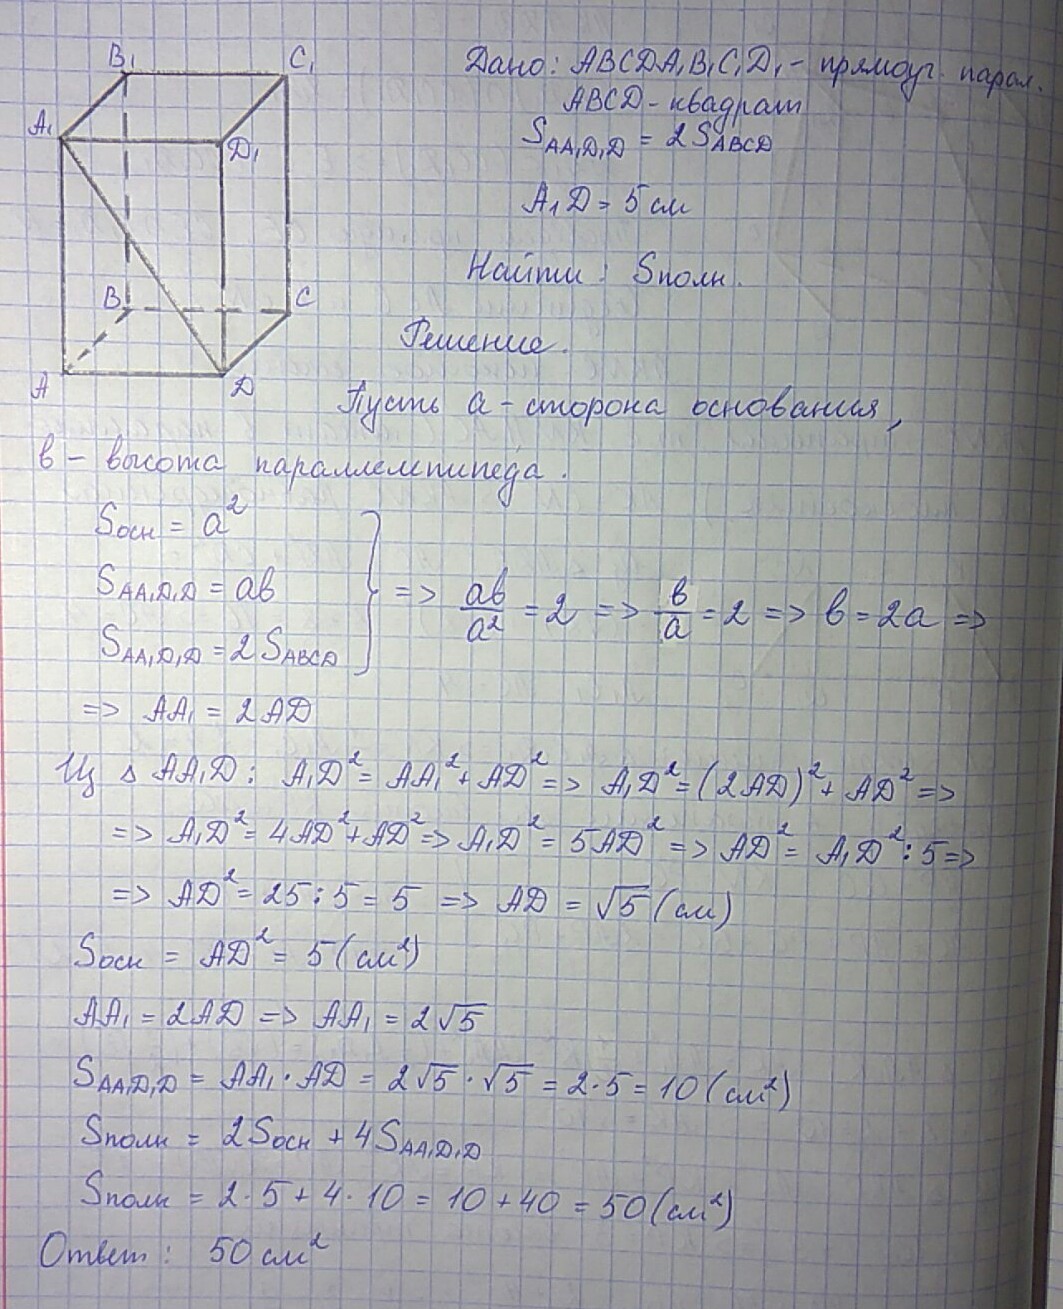 B₁ C₁
A₁ D₁
B C
A D
Дано: ABCDA₁B₁C₁D₁ - прямоуг. парал.
ABCD - квадрат
S_AA₁D₁D = 2S_ABCD
A₁D = 5 см
Найти: Sполн.
Решение.
Пусть a - сторона основания,
в - высота параллелепипеда.
Sосн = a²
S_AA₁D₁D = ab
S_AA₁D₁D = 2S_ABCD
} => ab/a² = 2 => в/a = 2 => в = 2a =>
=> AA₁ = 2AD
Из △ AA₁D: A₁D² = AA₁² + AD² => A₁D² = (2AD)² + AD² =>
=> A₁D² = 4AD² + AD² => A₁D² = 5AD² => AD² = A₁D² : 5 =>
=> AD² = 25 : 5 = 5 => AD = √5 (см)
Sосн = AD² = 5 (см²)
AA₁ = 2AD => AA₁ = 2√5
S_AA₁D₁D = AA₁ · AD = 2√5 · √5 = 2·5 = 10 (см²)
Sполн = 2Sосн + 4S_AA₁D₁D
Sполн = 2·5 + 4·10 = 10 + 40 = 50 (см²)
Ответ: 50 см²